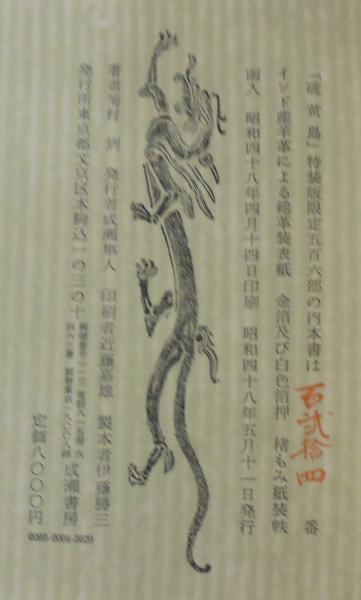 「硫黄島」特装版限定五百六部の内本書は 百弐拾四 番
インド産羊革による総革装表紙 金箔及び白色箔押 楮もみ紙装帙
函入 昭和四十八年四月十四日印刷 昭和四十八年五月十一日発行
著者菊村 到 発行者成瀬隼人 印刷者近藤嘉雄 製本者伊藤勝三
発行所東京都文京区本駒込一の三の十 成瀬書房
定価八〇〇〇円